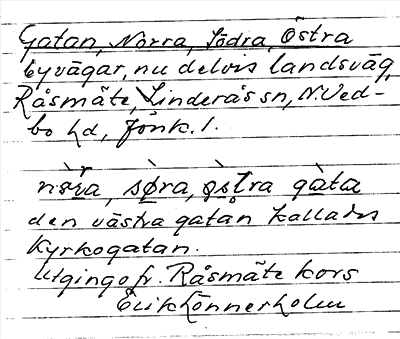 Gatan, Norra, Södra, Östra
byvägar, nu delvis landsväg,
Råsmäte, Linderås sn, N. Ved-
bo hd, Jönk. l.
nòr̆a, sø̀ra, ø̀stra gàta
den västra gatan kallades
Kyrkogatan.
Utgingo fr. Råsmäte kors
Erik Lönnerholm